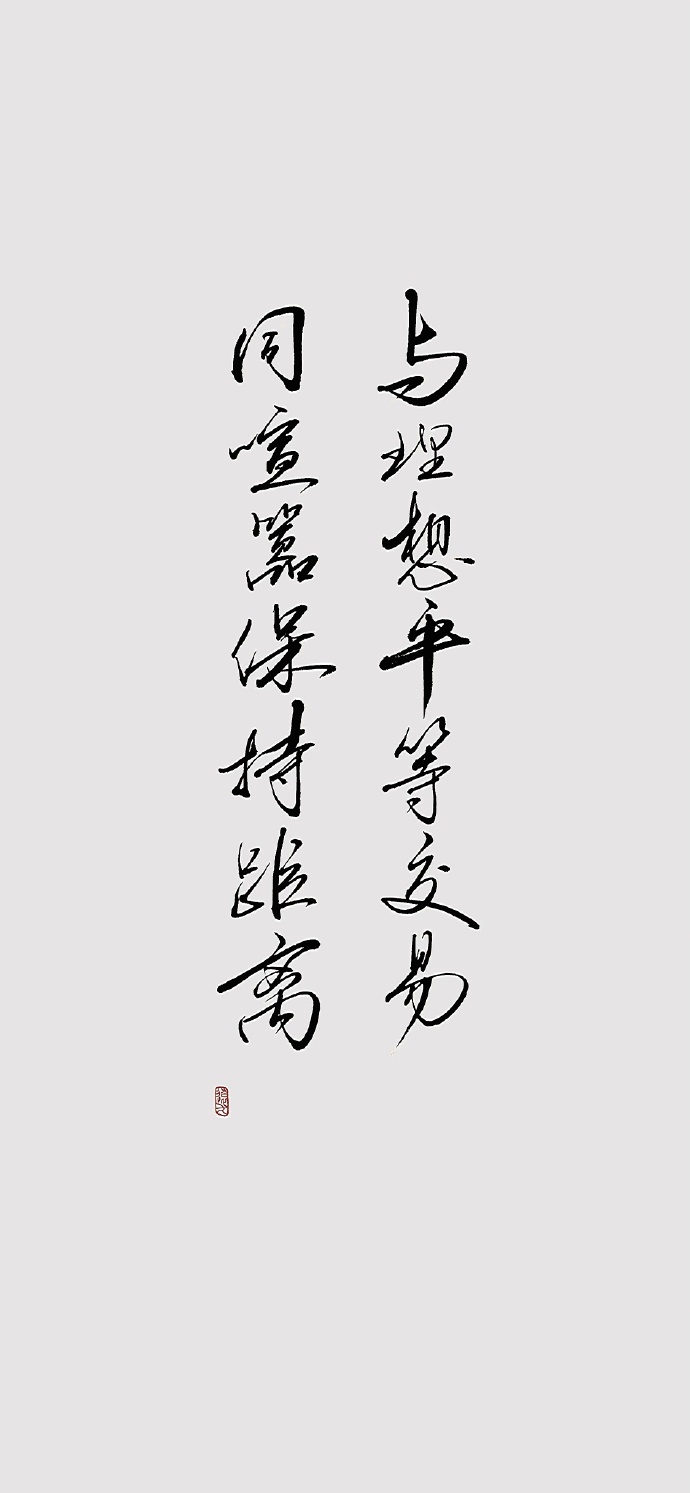 与理想平等交易
同喧嚣保持距离